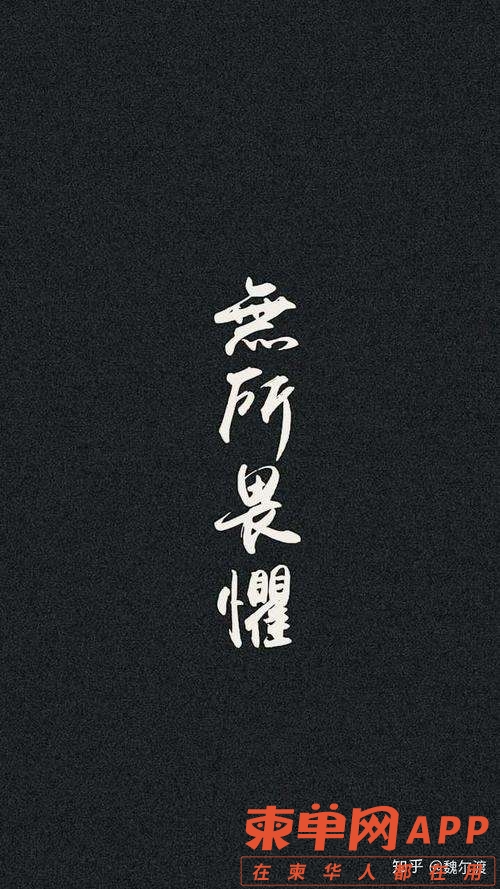 無所畏懼
柬单网APP
知乎 @魏尔渡
在柬华人都在用